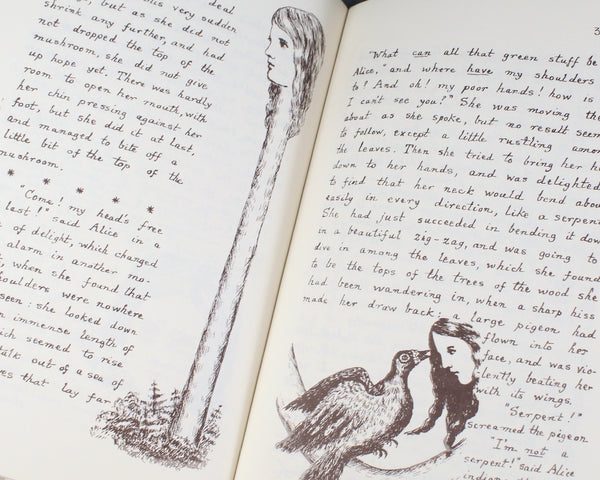 deal
but as she did not
shrink any further, and had
not dropped the top of the
mushroom, she did not give
up hope yet. There was hardly
room to open her mouth, with
her chin pressing against her
foot, but she did it at last,
and managed to bite off a
little bit of the top of the
mushroom.
* * * * *
"Come! my head's free
last!" said Alice in a
of delight, which changed
alarm in another mo-
when she found that
shoulders were nowhere
seen: she looked down
an immense length of
which seemed to rise
stalk out of a sea of
that lay far
3
"What can all that green stuff be
Alice, "and where have my shoulders
to? And oh! my poor hands! how is
I can't see you?" She was moving the
about as she spoke, but no result seem
to follow, except a little rustling amon
the leaves. Then she tried to bring her h
down to her hands, and was delighted
to find that her neck would bend abou
easily in every direction, like a serpent
She had just succeeded in bending it dow
in a beautiful zig-zag, and was going to
dive in among the leaves, which she found
to be the tops of the trees of the wood she
had been wandering in, when a sharp hiss
made her draw back: a large pigeon had
flown into her
face, and was vio-
lently beating her
with its wings.
"Serpent!"
screamed the pigeon
"I'm not a
serpent!" said Alice